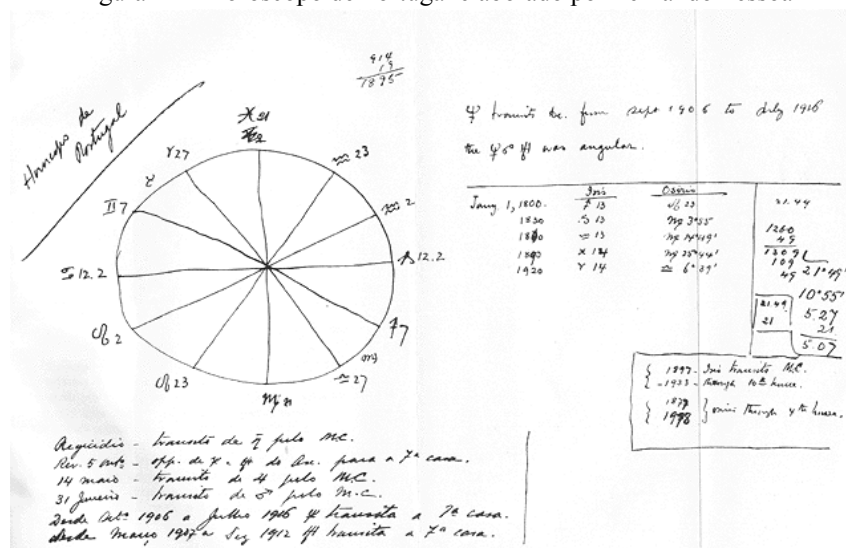 oróscopo de Portugal elaborado por Fernando Pessoa
914
19
1895
Horoscopo de
Portugal
♓ 21
♈ 27
♒ 23
♉
♊ 7
♒ 2
♋ 12.2
♑ 12.2
♌ 2
♐ 7
♏
♌ 23
♎ 27
♍ 21
♆ transits Dc. from Sept 1906 to July 1916
the ♆ 6° ♅ was angular.
Isis Osiris
Jany. 1, 1800. ♐ 13 ♌ 23
1830 ♑ 13 ♍ 3°55'
♒ 13 ♍ 14°49'
♓ 14 ♍ 25°44'
1920 ♈ 14 ♎ 6°39'
21.49
1260
49
1309
109
49 21°49'
10°55'
5.27
21
5.07
21.49
21
1897 - Isis transits M.C.
-1933 - through 10th house.
1879
1998 } Osiris through 4th house.
Regicidio - transito de ♄ pelo M.C.
Rev. 5 Outº - opp. de ♅ do Asc. para a 7ª casa.
14 maio - transito de ♃ pelo M.C.
31 Janeiro - transito de ♂ pelo M.C.
Desde Setº 1906 a Julho 1916 ♆ transita a 7ª casa.
desde Março 1907 a Dez 1912 ♅ transita a 7ª casa.